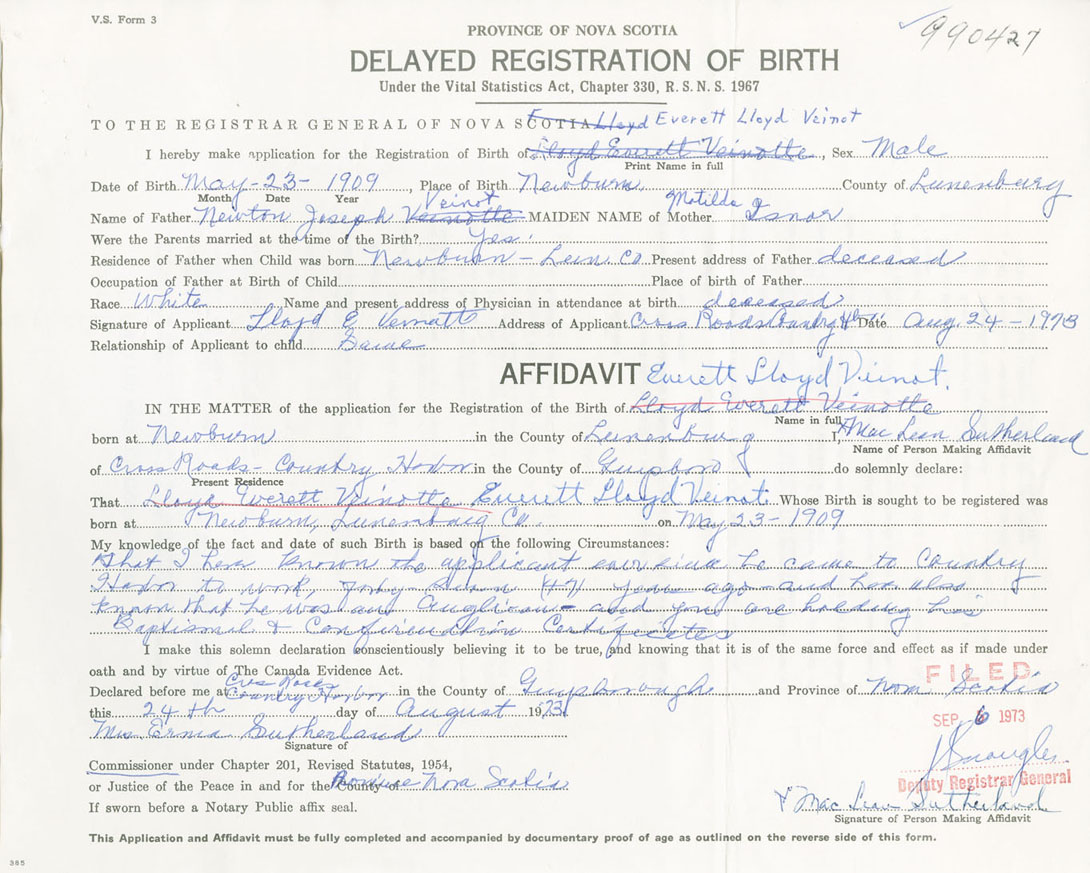 V.S. Form 3
990427
PROVINCE OF NOVA SCOTIA
DELAYED REGISTRATION OF BIRTH
Under the Vital Statistics Act, Chapter 330, R. S. N. S. 1967
TO THE REGISTRAR GENERAL OF NOVA SCOTIA Lloyd Everett Lloyd Veinot
I hereby make application for the Registration of Birth of Lloyd Everett Veinotte, Sex Male
Print Name in full
Date of Birth May - 23 - 1909, Place of Birth Newburn County of Lunenburg
Month Date Year
Veinot Matilda J
Name of Father Newton Joseph Veinotte MAIDEN NAME of Mother Isnor
Were the Parents married at the time of the Birth? Yes.
Residence of Father when Child was born Newburn - Lun. Co. Present address of Father deceased
Occupation of Father at Birth of Child Place of birth of Father
Race White Name and present address of Physician in attendance at birth deceased
Signature of Applicant Lloyd E Address of Applicant Cross Roads Country Hbr Date Aug. 24 - 1973
Relationship of Applicant to child Same
AFFIDAVIT Everett Lloyd Veinot.
IN THE MATTER of the application for the Registration of the Birth of Lloyd Everett Veinotte
Name in full
born at Newburn in the County of Lunenburg I, Mac Lean Sutherland
Name of Person Making Affidavit
of Cross Roads - Country Harbor in the County of Guysboro do solemnly declare:
Present Residence
That Lloyd Everett Veinotte Everett Lloyd Veinot Whose Birth is sought to be registered was
born at Newburn, Lunenburg Co. on May 23 - 1909
My knowledge of the fact and date of such Birth is based on the following Circumstances:
that I have known the applicant ever since he came to Country
Harbor to work, forty seven (47) years ago - and have also
known that he was an Anglican - and you are holding his
Baptismal & Confirmation Certificates
I make this solemn declaration conscientiously believing it to be true, and knowing that it is of the same force and effect as if made under
oath and by virtue of The Canada Evidence Act.
FILED
Cross Roads
Declared before me at Country Harbor in the County of Guysborough and Province of Nova Scotia
this 24th day of August 1973
SEP 6 1973
Mrs. Erma Sutherland
Signature of
Commissioner under Chapter 201, Revised Statutes, 1954,
Deputy Registrar General
or Justice of the Peace in and for the County of Province Nova Scotia
Mac Lean Sutherland
Signature of Person Making Affidavit
If sworn before a Notary Public affix seal.
This Application and Affidavit must be fully completed and accompanied by documentary proof of age as outlined on the reverse side of this form.
385